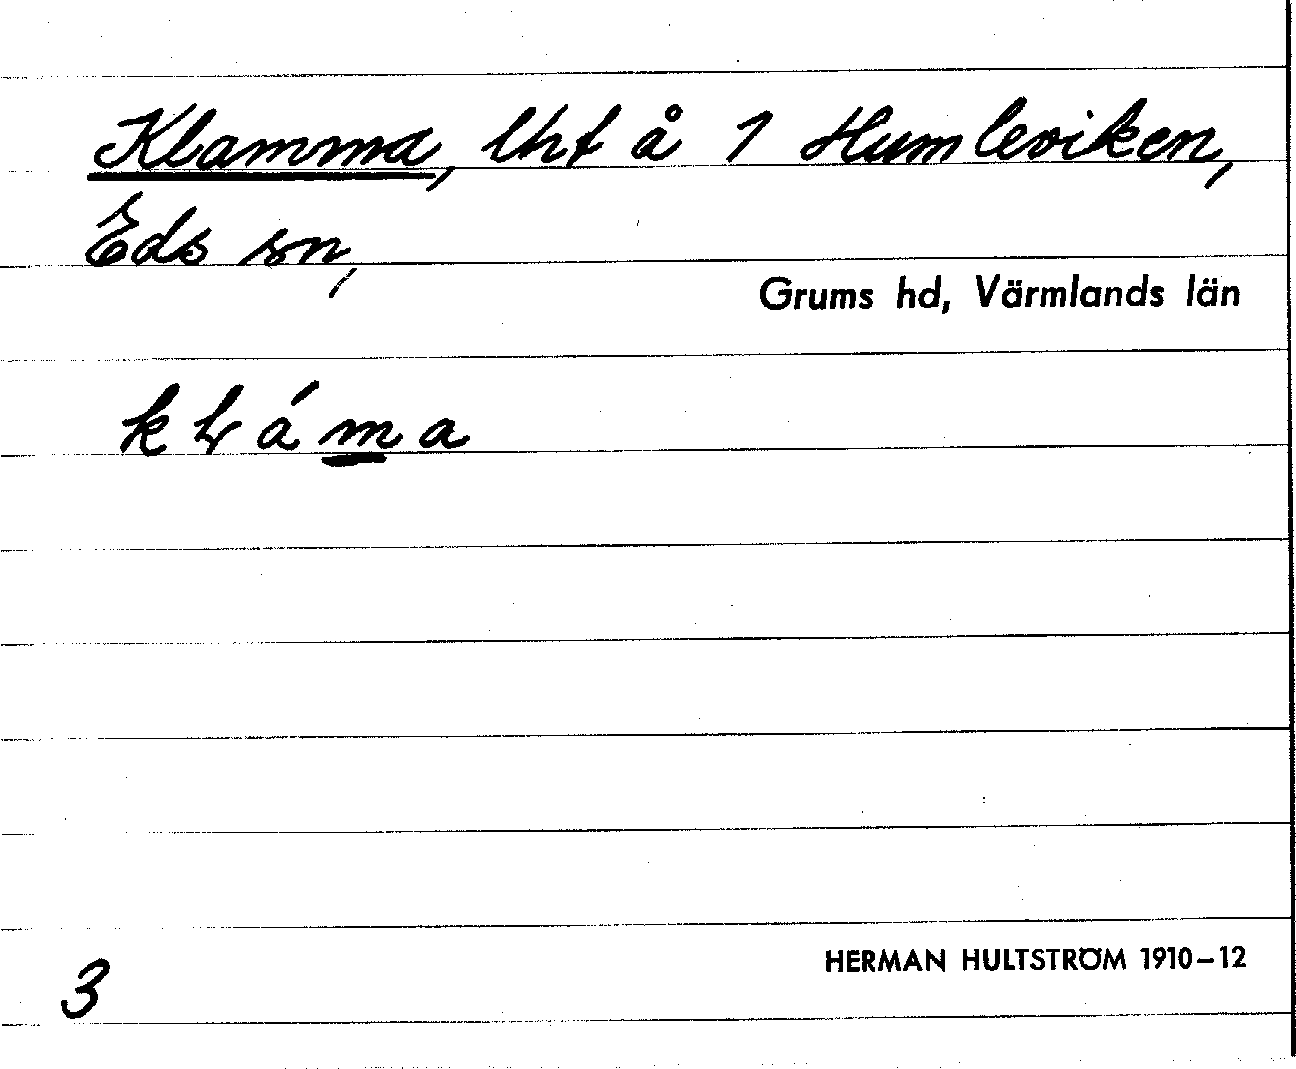 Klamma, lht å 1 Humleviken,
Eds sn,
Grums hd, Värmlands län
kláma
HERMAN HULTSTRÖM 1910–12
3